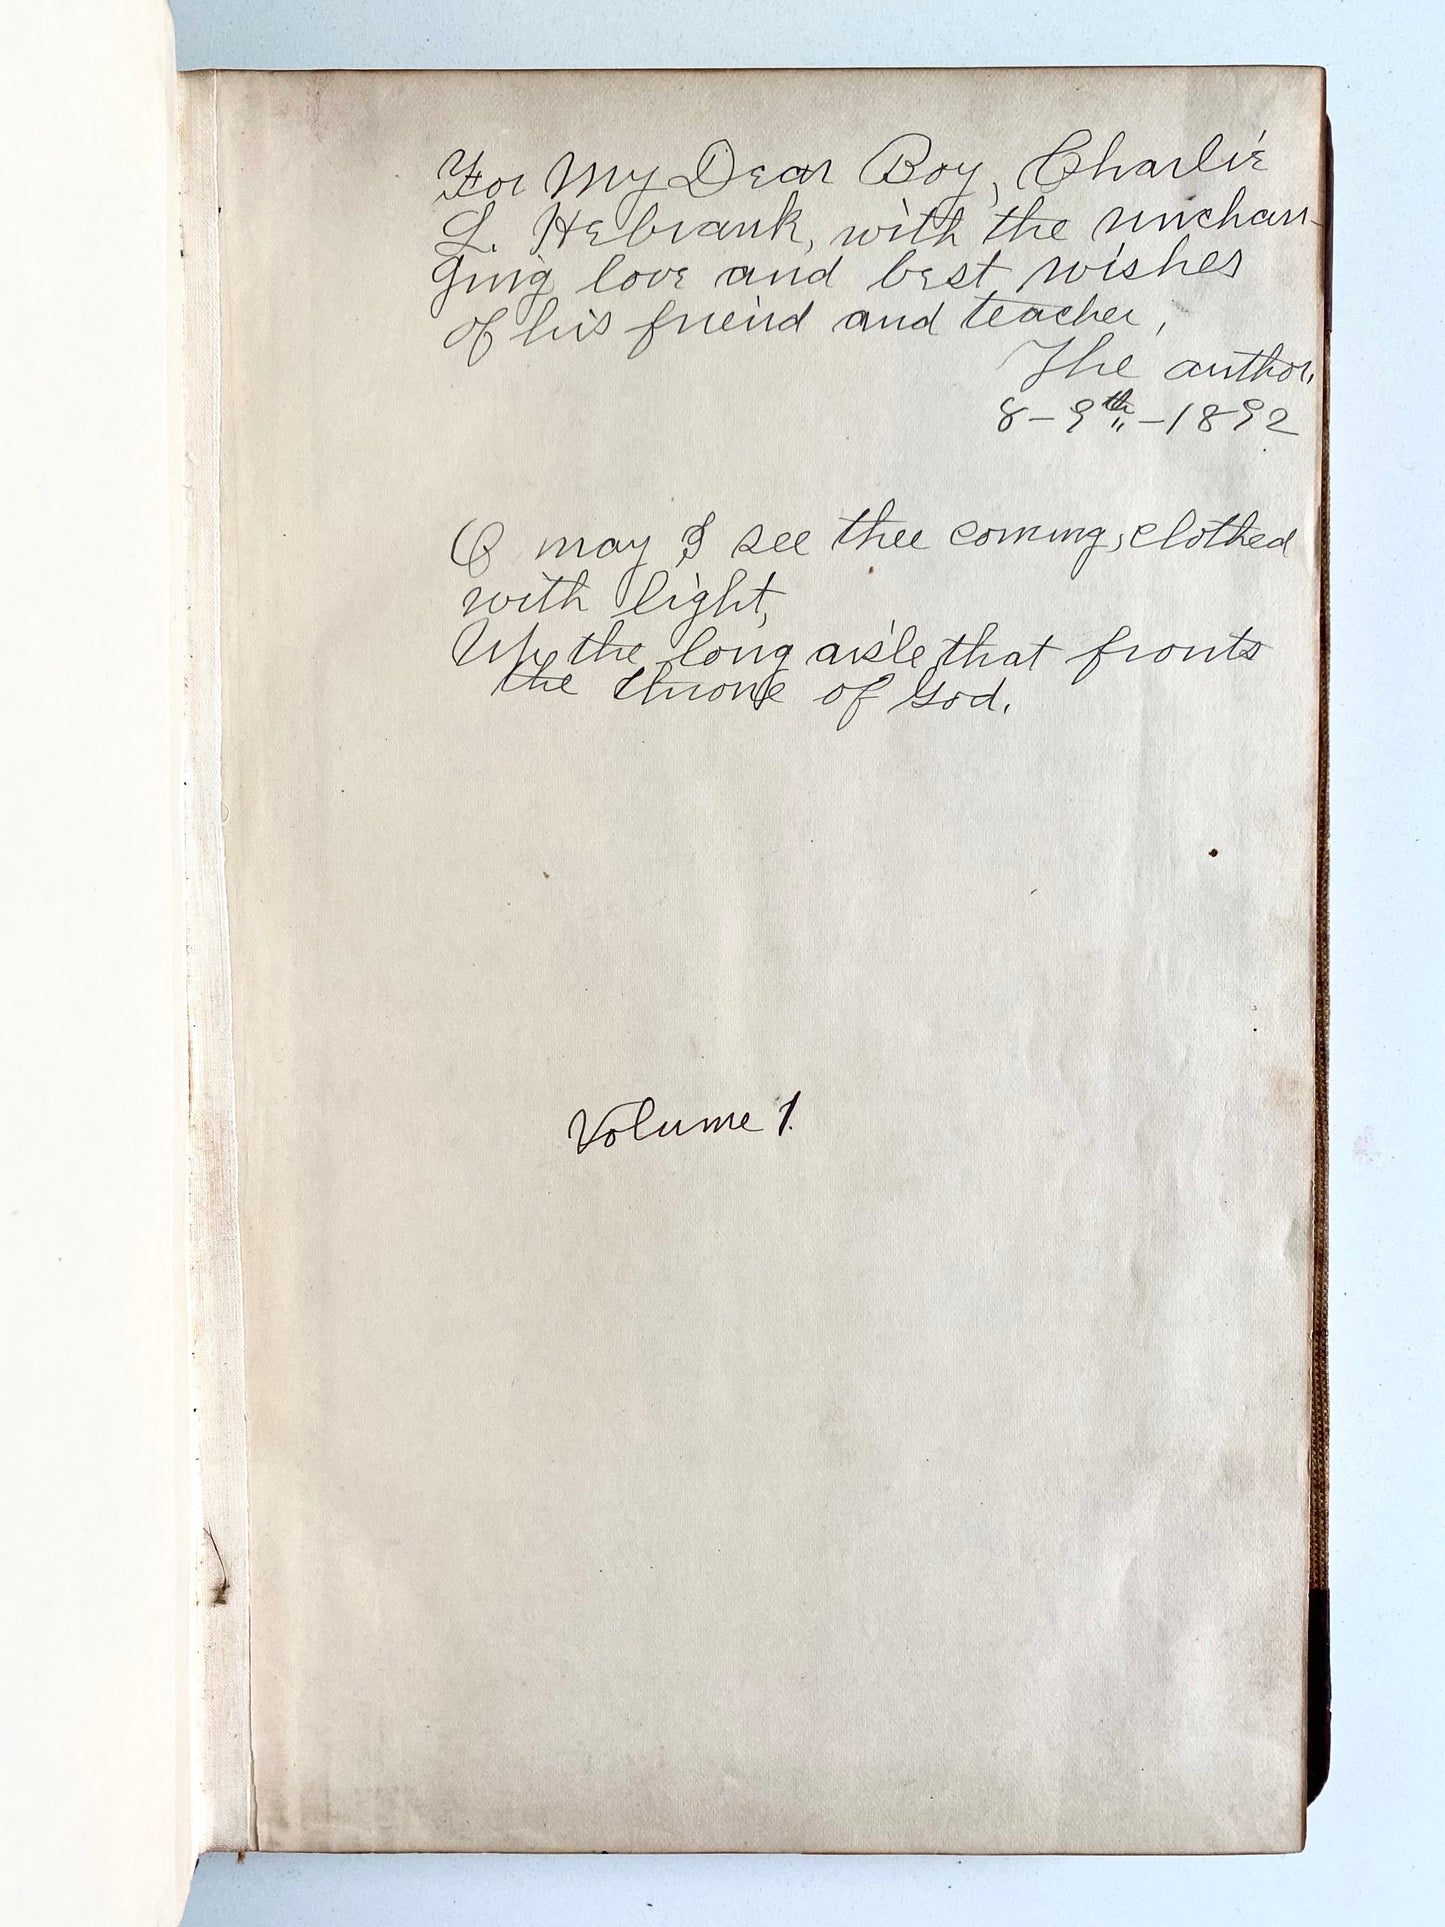 For My Dear Boy, Charlie
L. Hebrank, with the unchan-
ging love and best wishes
of his friend and teacher,
The author,
8-9th-1892
O may I see thee coming, clothed
with light,
Up the long aisle that fronts
the throne of God.
Volume 1.